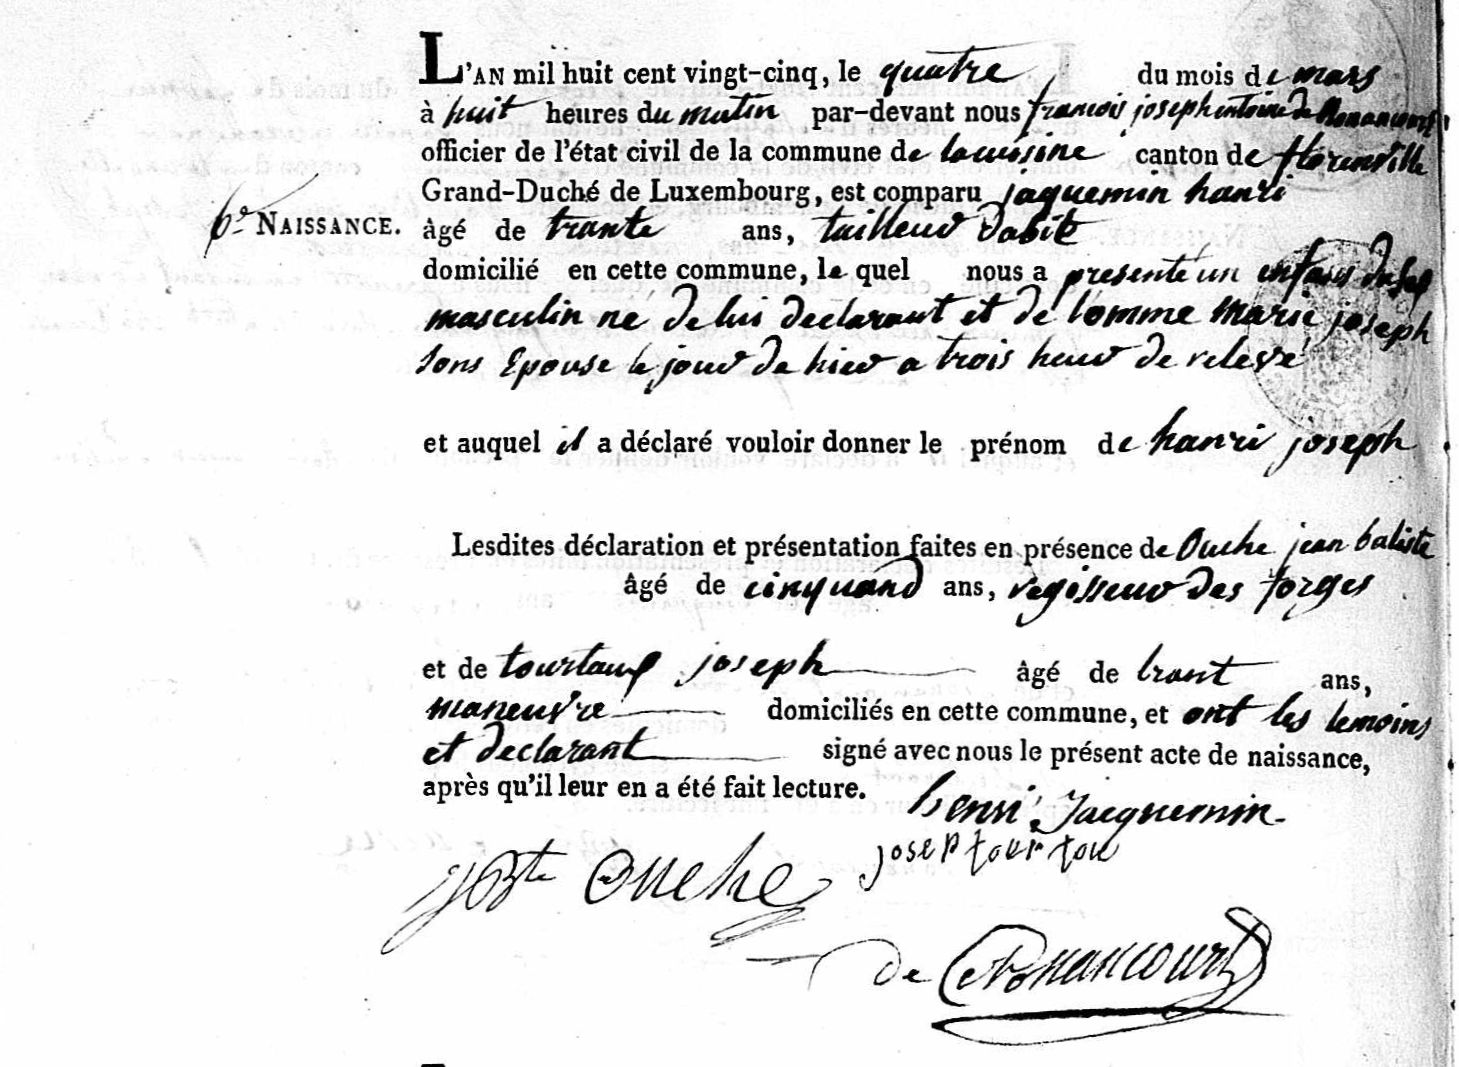 L'AN mil huit cent vingt-cinq, le quatre du mois de mars
à huit heures du matin par-devant nous francois joseph antoine de Nonancourt
officier de l'état civil de la commune de lacuisine canton de florenville
Grand-Duché de Luxembourg, est comparu jaquemin hanri
6e NAISSANCE. âgé de trante ans, tailleur dabit
domicilié en cette commune, le quel nous a presenté un enfant du sex
masculin né de lui declarant et de lomme marie joseph
sons Epouse le jour de hier a trois heur de relevé
et auquel il a déclaré vouloir donner le prénom de hanri joseph
Lesdites déclaration et présentation faites en présence de Ouche jean batiste
âgé de cinquand ans, regisseur des forges
et de tourtaux joseph âgé de trant ans,
maneuvre domiciliés en cette commune, et ont les temoins
et declarant signé avec nous le présent acte de naissance,
après qu'il leur en a été fait lecture.
henri Jacquemin
josep tourtou
J Bte Ouche
de Nonancourt